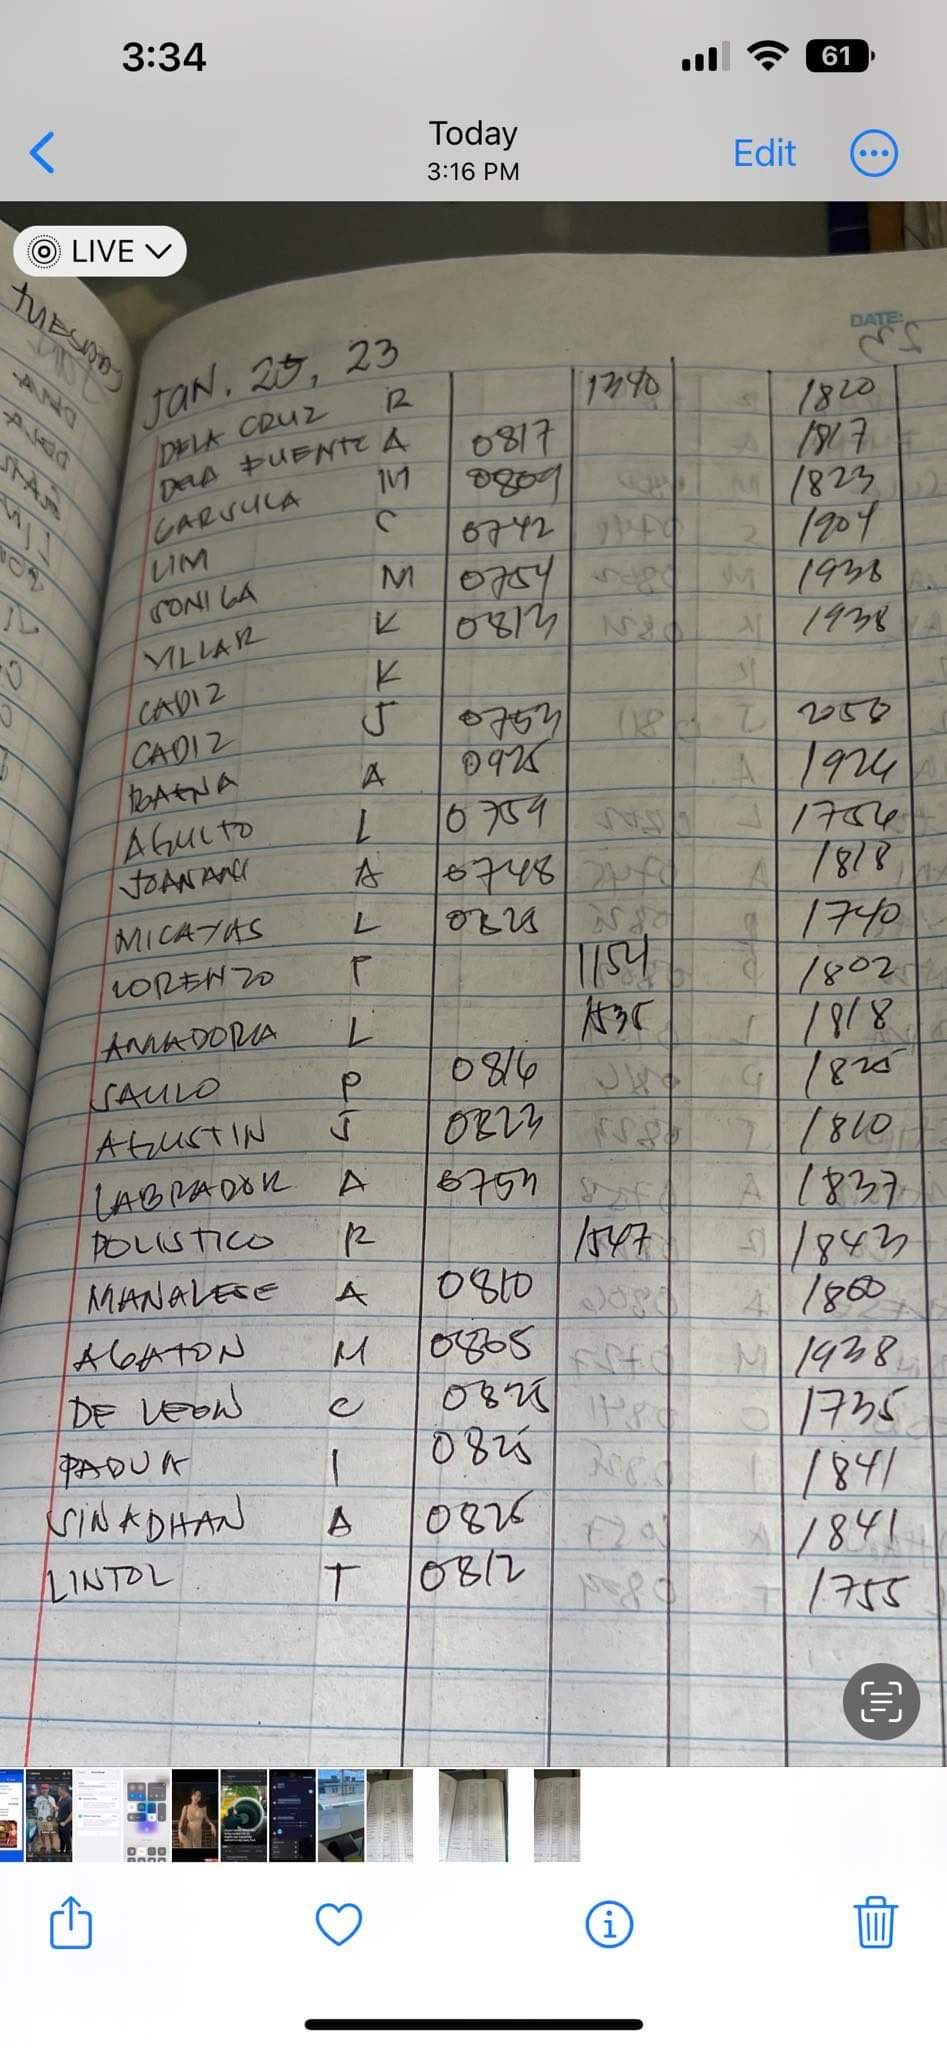 3:34
61
Today
3:16 PM
Edit
LIVE
TUESDAY
DATE:
JAN. 25, 23
DELA CRUZ R 1340 1820
DELA FUENTE A 0817 1817
GARSULA M 0809 1823
LIM C 0742 1904
SONIGA M 0754 1938
VILLAR K 0813 1938
CADIZ K
CADIZ J 0753 2050
BAENA A 0925 1926
AGULTO L 0759 1756
JOANANI A 0748 1818
MICAYAS L 0823 1740
LORENZO P 1154 1802
AMADORA L 1535 1818
SAULO P 0816 1825
AGUSTIN J 0823 1810
LABRADOR A 0753 1837
POLISTICO R 1547 1843
MANALESE A 0810 1800
AGATON M 0805 1938
DE LEON C 0825 1735
PADUA I 0825 1841
SINADHAN A 0826 1841
LINTOL T 0812 1755